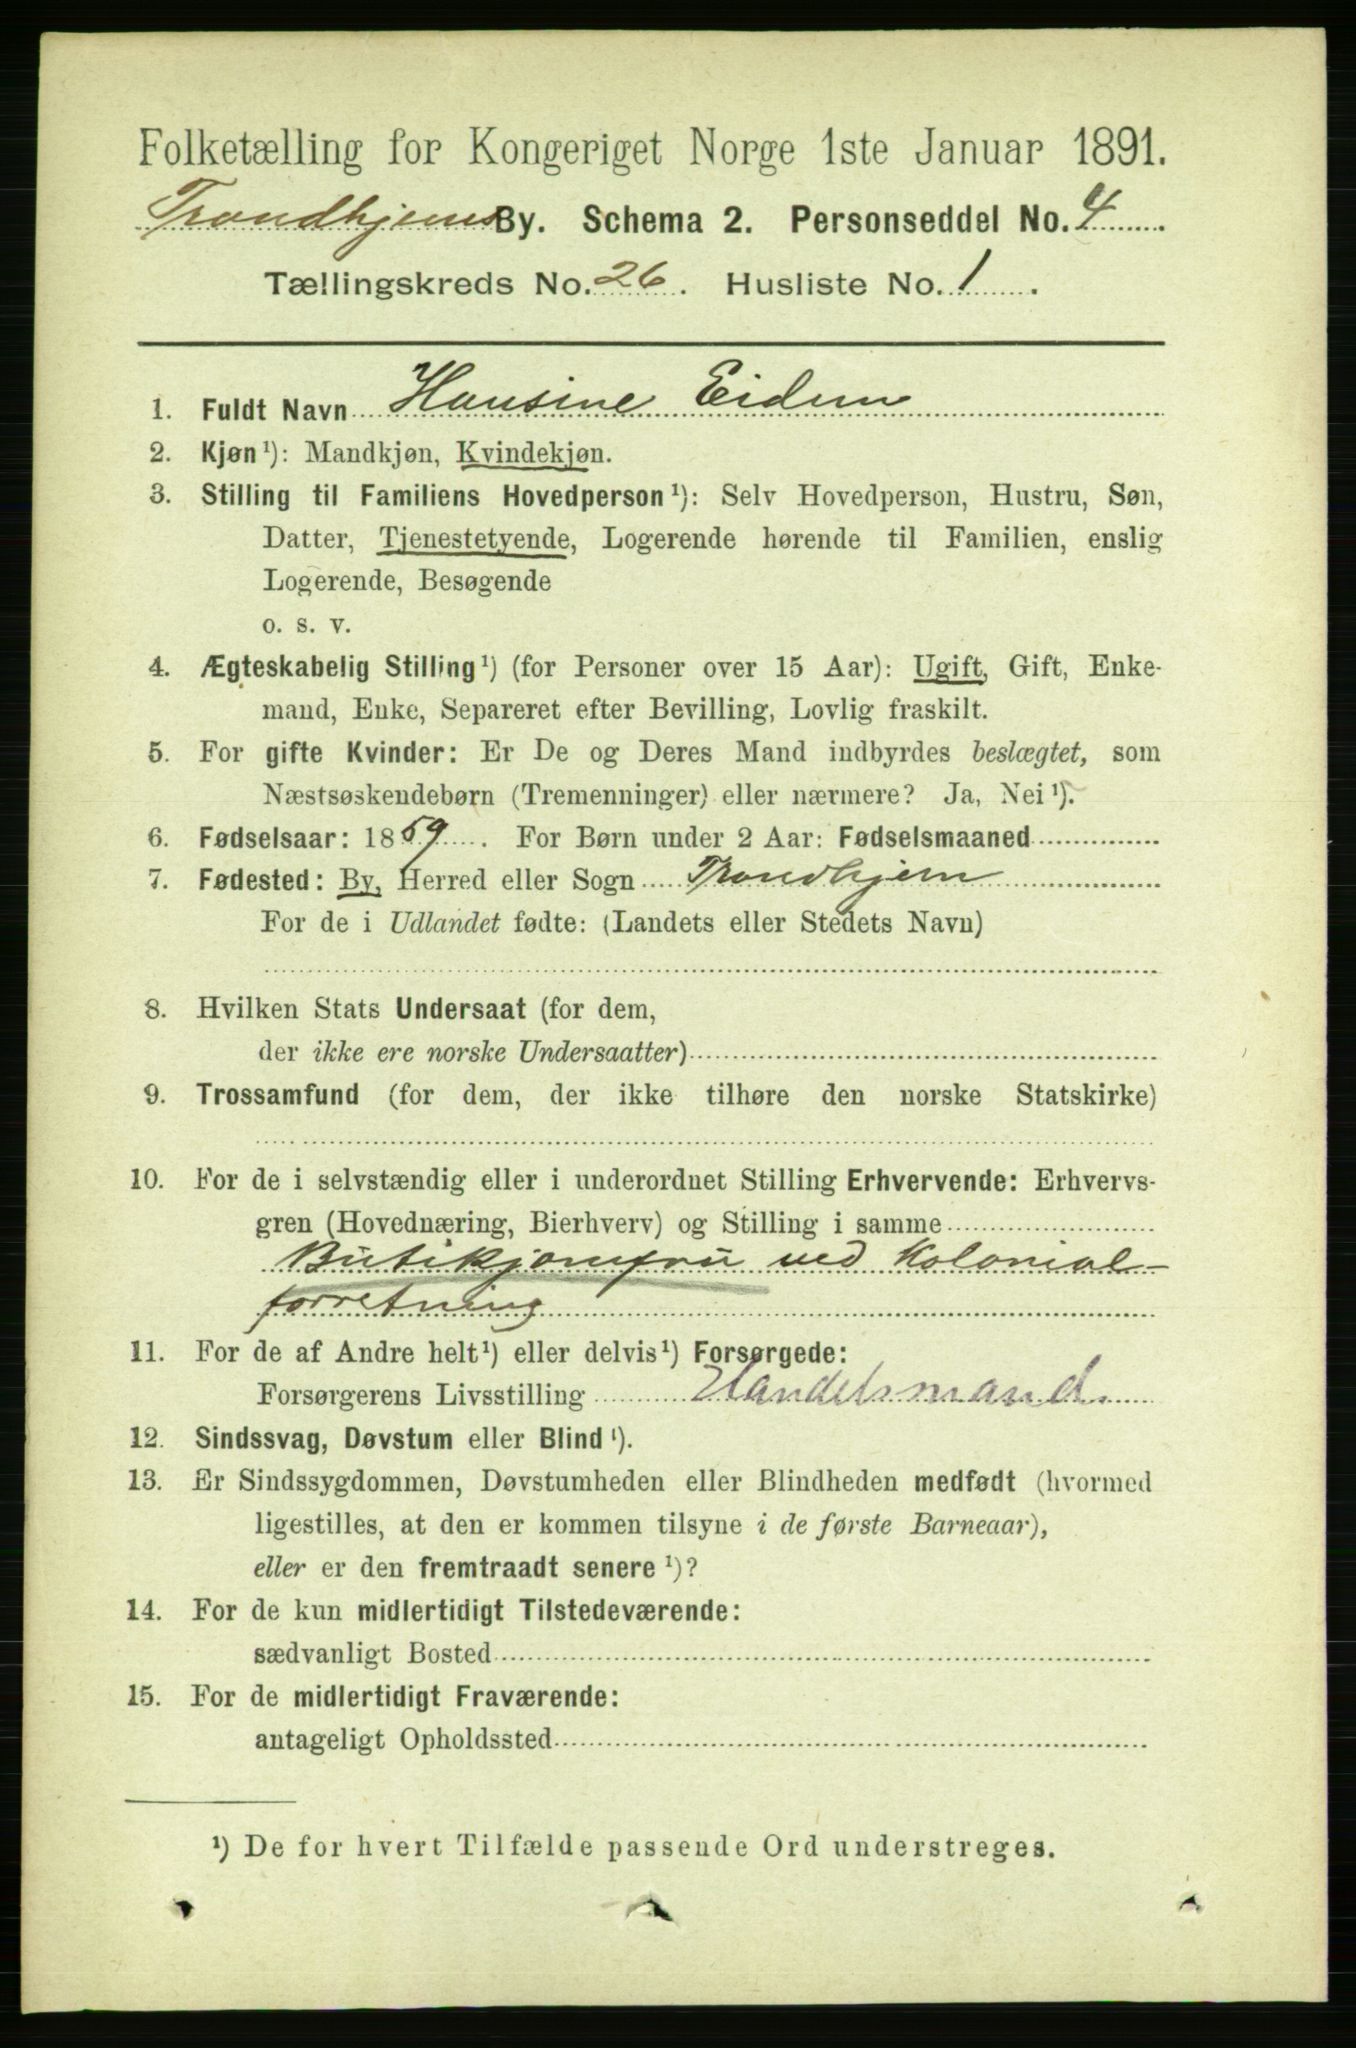 Folketælling for Kongeriget Norge 1ste Januar 1891.
Trondhjems By. Schema 2. Personseddel No. 4
Tællingskreds No. 26. Husliste No. 1.
1. Fuldt Navn Hansine Eidem
2. Kjøn ¹): Mandkjøn, Kvindekjøn.
3. Stilling til Familiens Hovedperson ¹): Selv Hovedperson, Hustru, Søn,
Datter, Tjenestetyende, Logerende hørende til Familien, enslig
Logerende, Besøgende
o. s. v.
4. Ægteskabelig Stilling ¹) (for Personer over 15 Aar): Ugift, Gift, Enke-
mand, Enke, Separeret efter Bevilling, Lovlig fraskilt.
5. For gifte Kvinder: Er De og Deres Mand indbyrdes beslægtet, som
Næstsøskendebørn (Tremenninger) eller nærmere? Ja, Nei ¹).
6. Fødselsaar: 1859. For Børn under 2 Aar: Fødselsmaaned
7. Fødested: By, Herred eller Sogn Trondhjem
For de i Udlandet fødte: (Landets eller Stedets Navn)
8. Hvilken Stats Undersaat (for dem,
der ikke ere norske Undersaatter)
9. Trossamfund (for dem, der ikke tilhøre den norske Statskirke)
10. For de i selvstændig eller i underordnet Stilling Erhvervende: Erhvervs-
gren (Hovednæring, Bierhverv) og Stilling i samme
Butikjomfru ved Kolonial-
forretning
11. For de af Andre helt ¹) eller delvis ¹) Forsørgede:
Forsørgerens Livsstilling Handelsmand.
12. Sindssvag, Døvstum eller Blind ¹).
13. Er Sindssygdommen, Døvstumheden eller Blindheden medfødt (hvormed
ligestilles, at den er kommen tilsyne i de første Barneaar),
eller er den fremtraadt senere ¹)?
14. For de kun midlertidigt Tilstedeværende:
sædvanligt Bosted
15. For de midlertidigt Fraværende:
antageligt Opholdssted
¹) De for hvert Tilfælde passende Ord understreges.